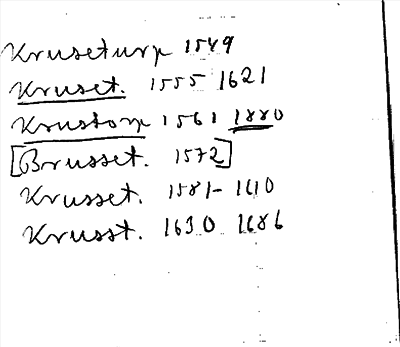 Kruseturp 1549
Kruset. 1555 1621
Krustorp 1561 1880
[Brusset. 1572]
Krusset. 1581-1610
Krusst. 1630 1686